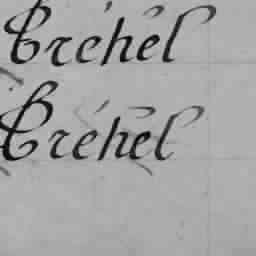 Créhel
Créhel